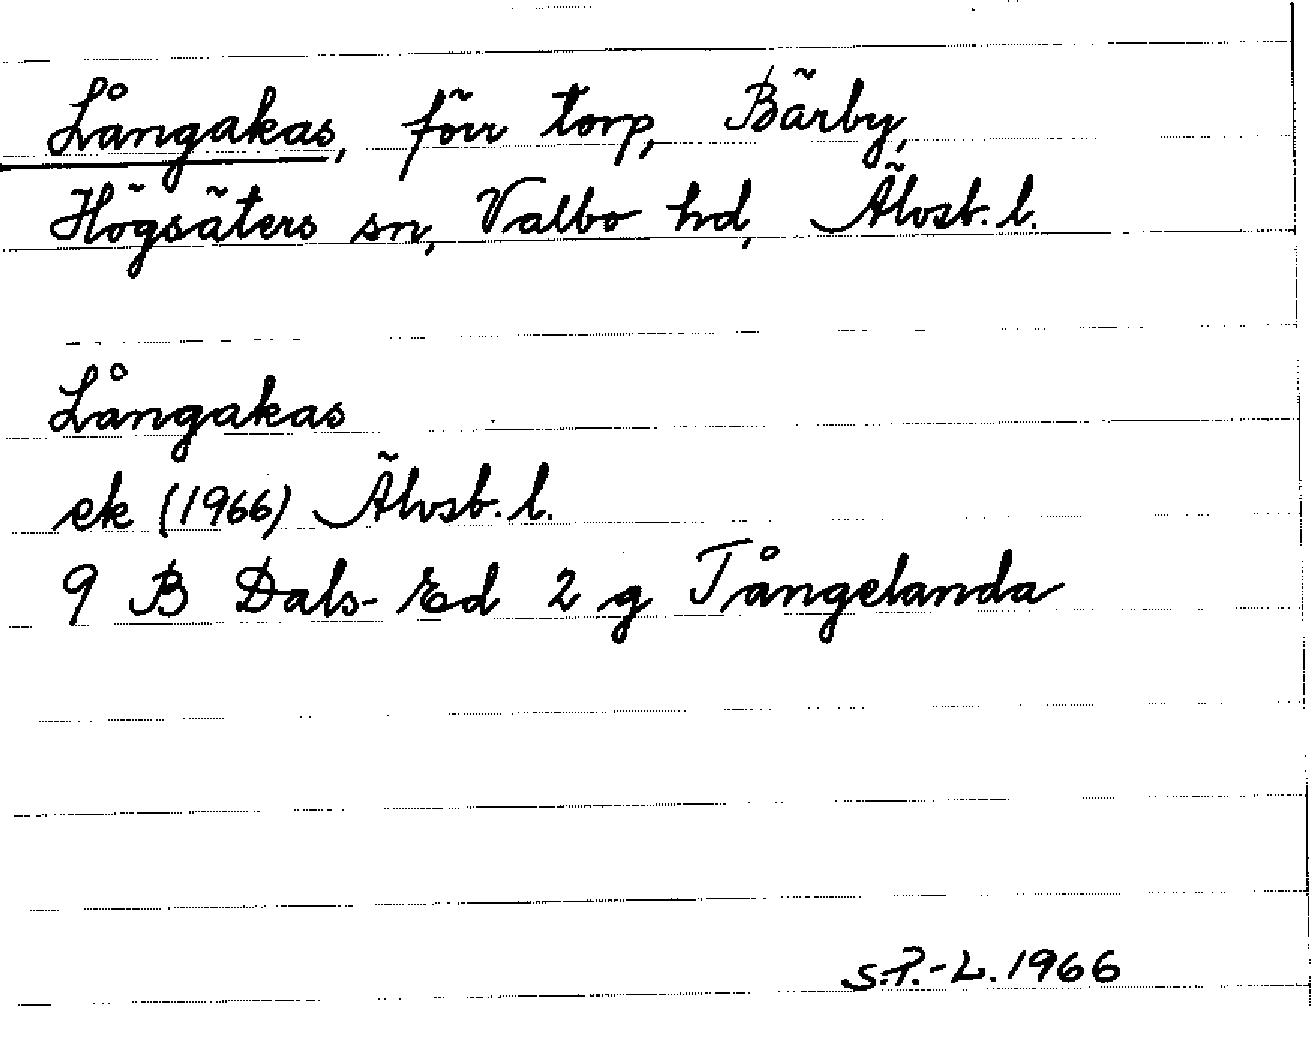 Långakas, förr torp, Bärby,
Högsäters sn, Valbo hd, Älvsb. l.
Långakas
ek (1966) Älvsb. l.
9 B Dals-Ed 2 g Tångelanda
S.P.-L. 1966